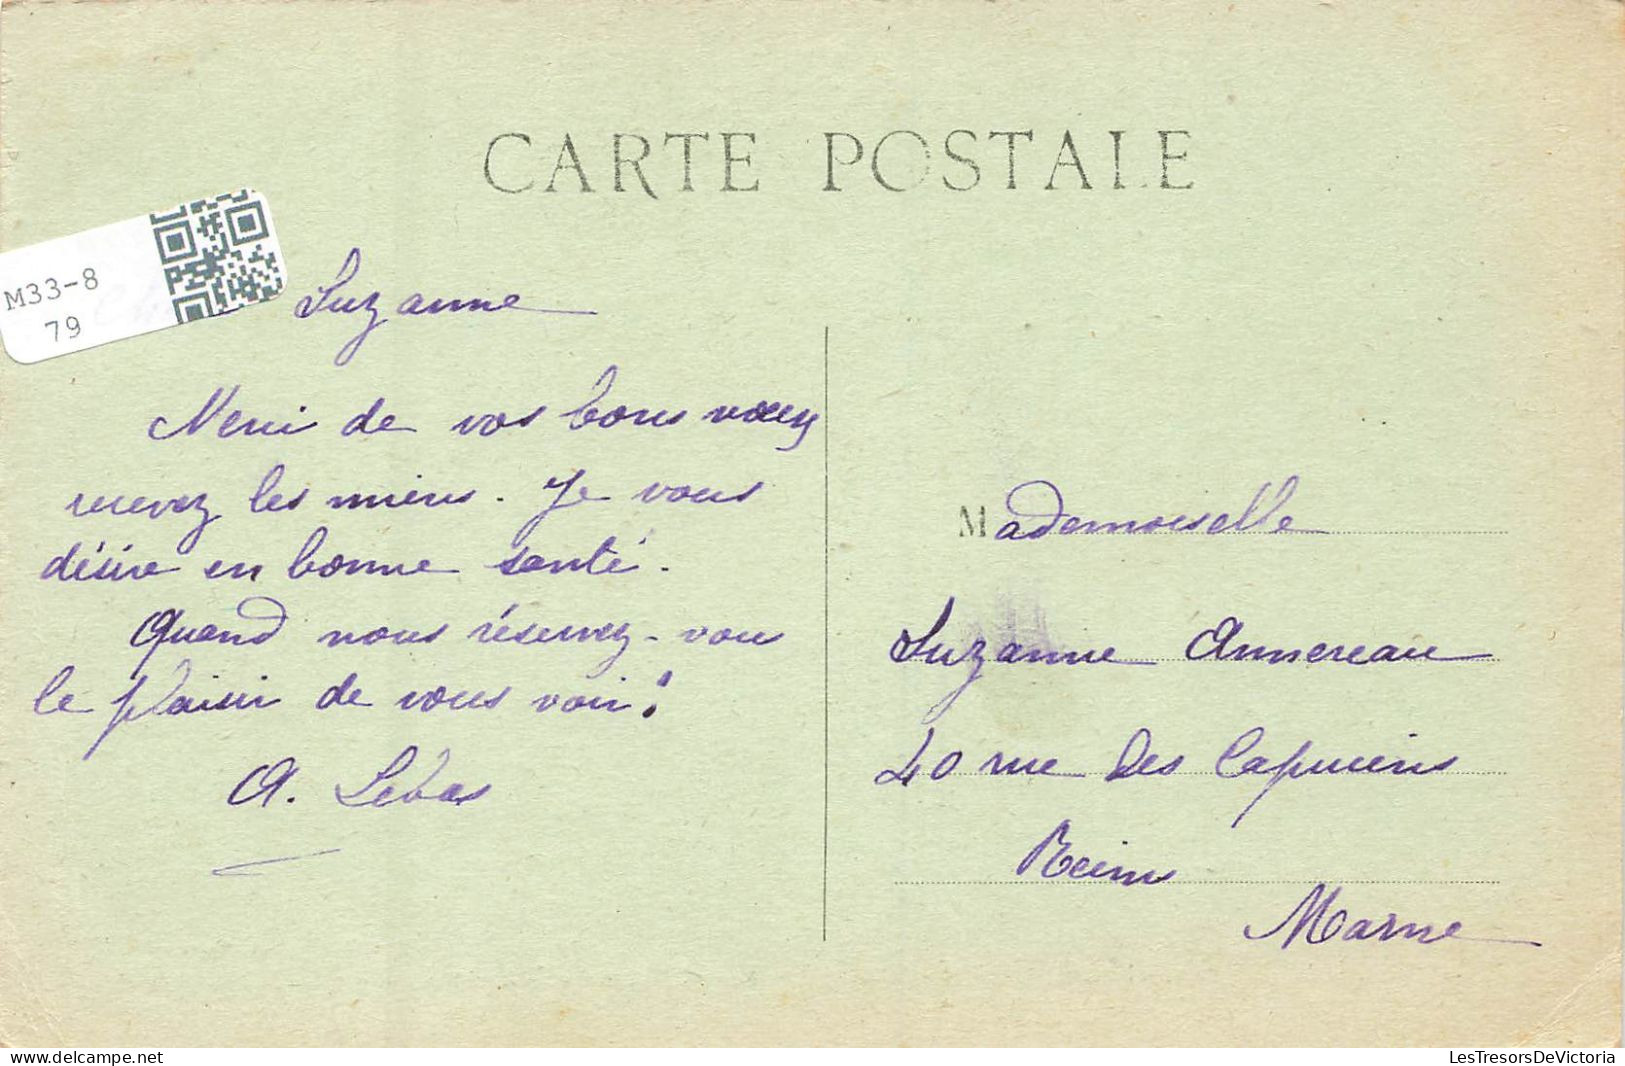 CARTE POSTALE
M33-8
79
Suzanne
Merci de vos bons vœux
recevez les miens. Je vous
désire en bonne santé.
Quand nous réservez-vous
le plaisir de vous voir!
A. Lebas
Mademoiselle
Suzanne Annereau
40 rue des Capucins
Reims
Marne
delcampe.net
LesTresorsDeVictoria